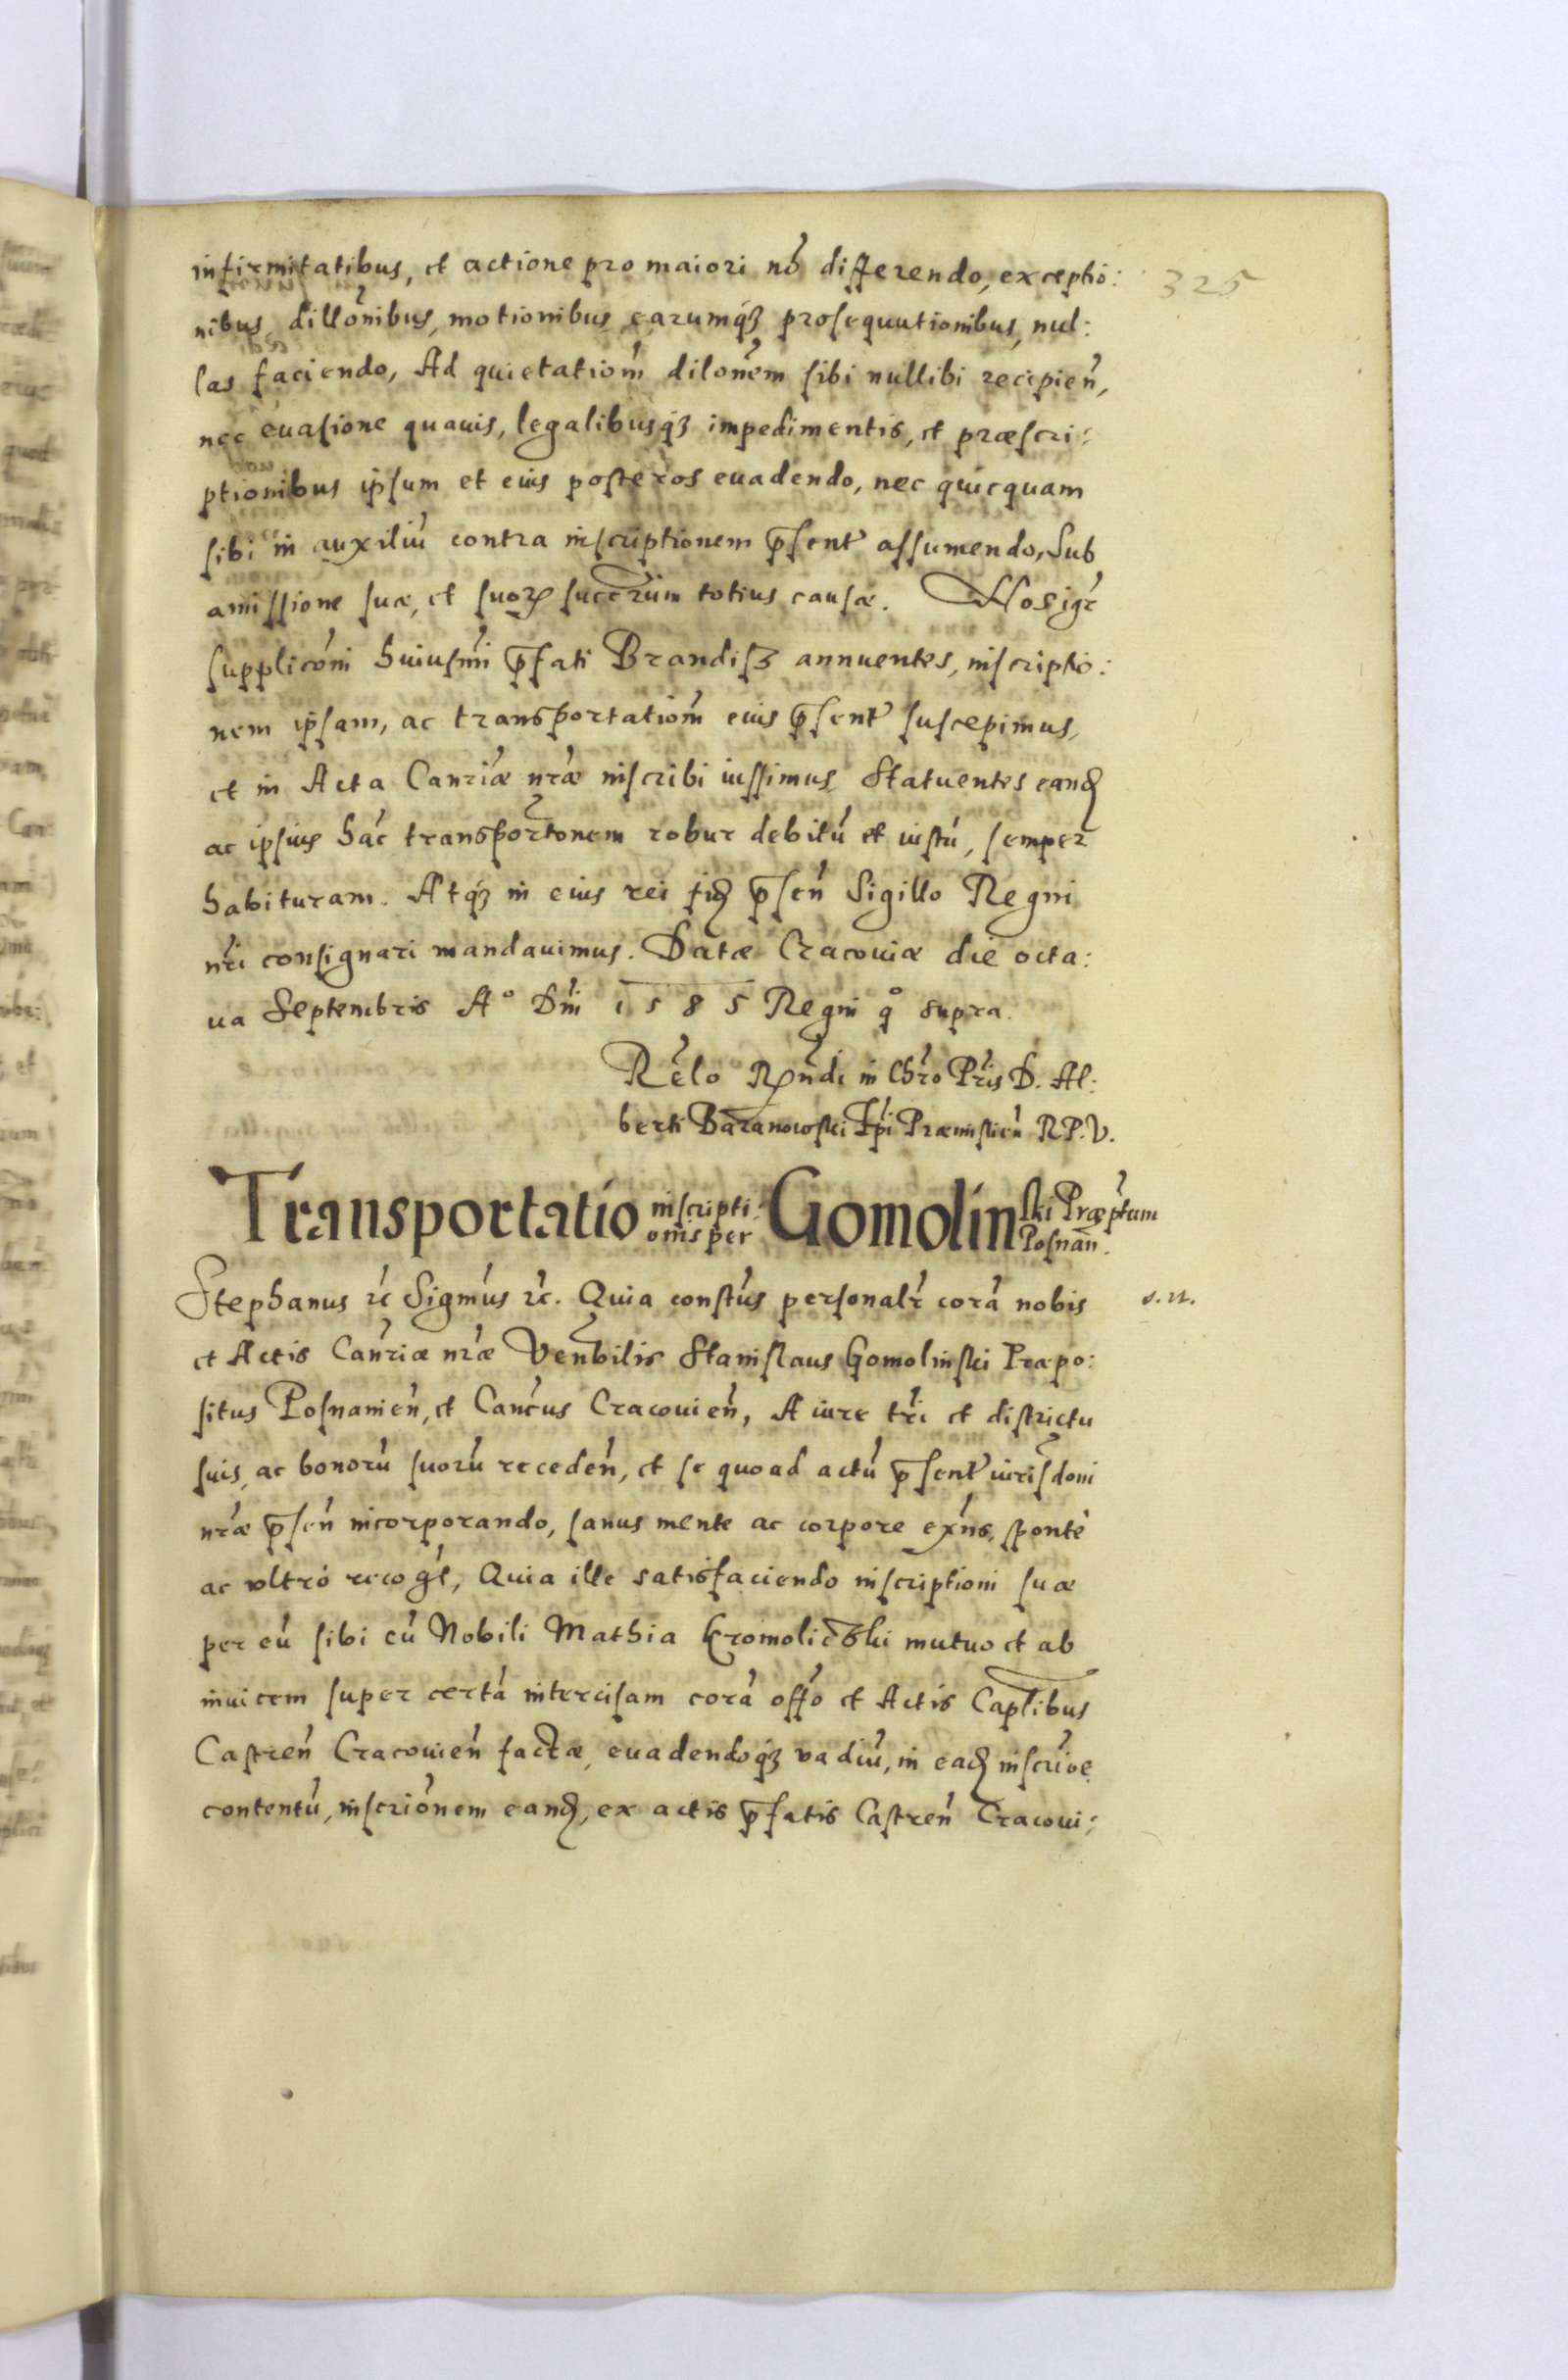 325
infirmitatibus, et actione pro maiori nō differendo, exceptio:
nibus, dillōnibus, motionibus, earumq́ꝫ prosequutionibus, nul:
las faciendo, Ad quietatiom̃ dilonẽm sibi nullibi recipień,
nec euasione quauis, legalibusq́ꝫ impedimentis, et præscri:
ptionibus ipsum et eius posteros euadendo, nec quicquam
sibi in auxiliū contra inscriptionem p̄sent̃ assumendo, Sub
amissione suæ, et suoꝝ succr̃um totius causæ. Nos igr̃
supplicōni huiusmi p̄fati Brandisz annuentes, inscriptio:
nem ipsam, ac transportatiom̃ eius p̄sent̃ suscepimus,
et in Acta Canr̃iæ nr̃æ inscribi iussimus, Statuentes eanḋ
ac ipsius hác transportõnem robur debitū et iustū, semper
habituram. Atq́ꝫ in eius rei fiḋ p̄señ Sigillo Regni
nr̃i consignari mandauimus. Datæ Cracouiæ die octa:
ua Septembris A° Dn̄i 1585 Regni q° supra.
Rẽlo Rn̄di in Chr̃o Pr̃is D. Al:
berti Baranowski Ep̃i Præmislień R.P.V.
Transportatio inscripti:
onis per Gomolinski Præp̃tum
Posnañ.
Stephanus ꝛc̃ Sigmũs ꝛc̃. Quia constũs personalr̃ corā nobis
s.n.
et Actis Canr̃iæ nr̃æ Veñbilis Stanislaus Gomolinski Præpo:
situs Posnanień, et Canc̃us Cracouień, A iure tr̃i et districtu
suis, ac bonorū suorū recedeń, et se quoad actū p̄sent̃ iurisdõni
nr̃æ p̄señ incorporando, sanus mente ac corpore exñs, spontè
ac vltrò recogt̃, Quia ille satisfaciendo inscriptioni suæ
per eū sibi cū Nobili Mathia Kromoliczki mutuo et ab
inuicem super certā intercisam corā offo et Actis Capt̃libus
Castreń Cracouień factæ, euadendoq́ꝫ vadiū, in eaḋ inscrio̅e
contentū, inscriõnem eanḋ, ex actis p̄fatis Castreń Cracoui: